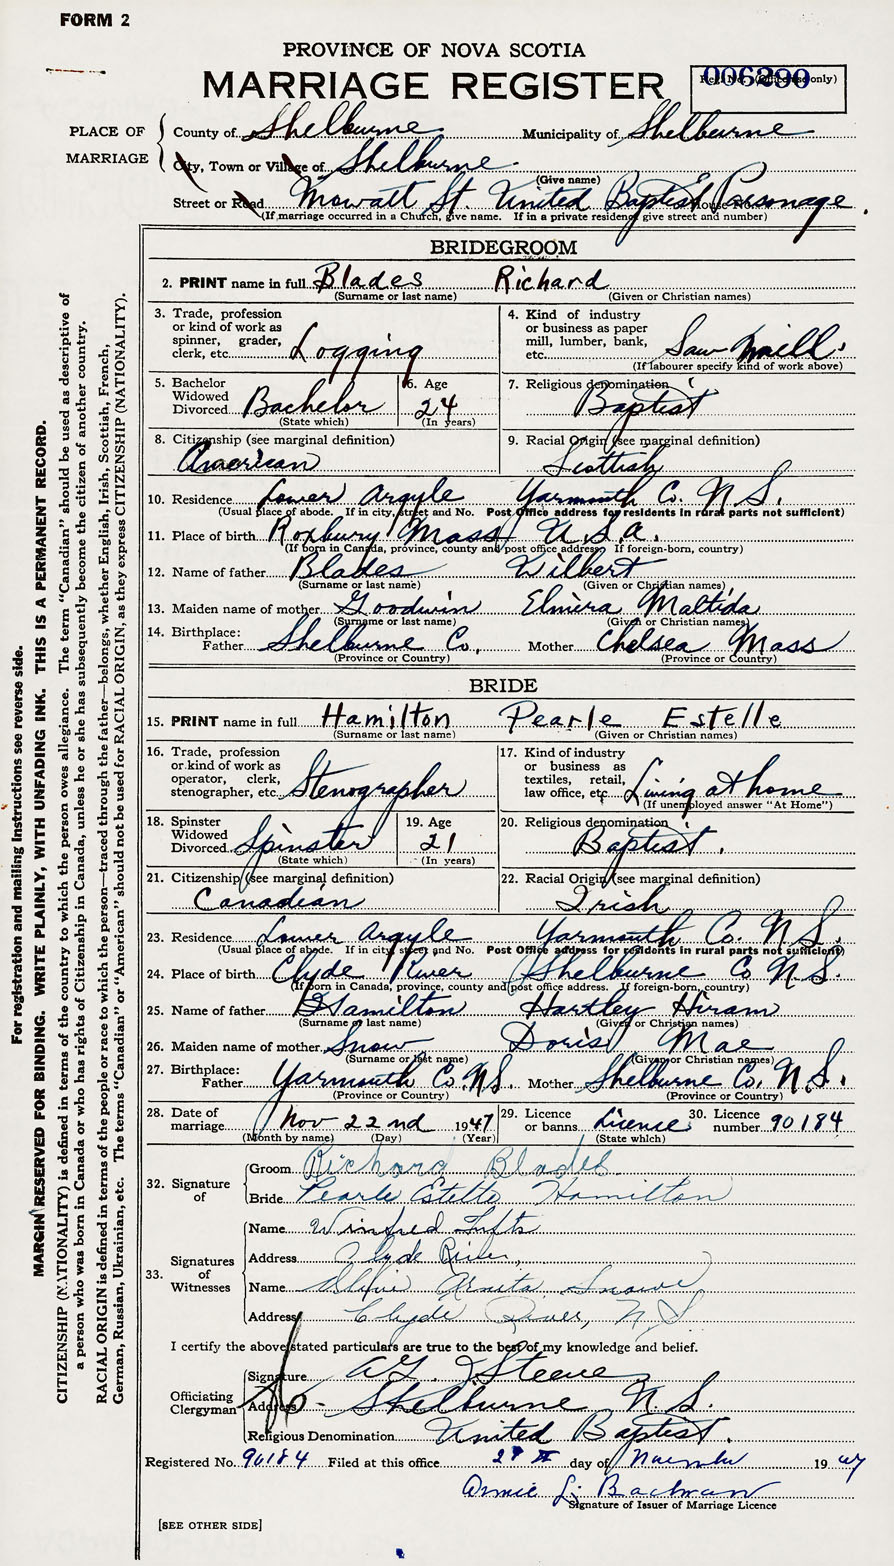 FORM 2
PROVINCE OF NOVA SCOTIA
MARRIAGE REGISTER
006290
Reg. No. (Office use only)
PLACE OF MARRIAGE
County of Shelburne Municipality of Shelburne
City, Town or Village of Shelburne.
(Give name)
Street or Road Mowatt St. United Baptist Parsonage.
(If marriage occurred in a Church, give name. If in a private residence give street and number)
BRIDEGROOM
2. PRINT name in full Blades Richard
(Surname or last name) (Given or Christian names)
3. Trade, profession or kind of work as spinner, grader, clerk, etc. Logging
4. Kind of industry or business as paper mill, lumber, bank, etc. Saw mill.
(If labourer specify kind of work above)
5. Bachelor Widowed Divorced Bachelor
(State which)
6. Age 24
(In years)
7. Religious denomination Baptist
8. Citizenship (see marginal definition) American
9. Racial Origin (see marginal definition) Scottish
10. Residence Lower Argyle Yarmouth Co. N.S.
(Usual place of abode. If in city, street and No. Post Office address for residents in rural parts not sufficient)
11. Place of birth Roxbury Mass U.S.A.
(If born in Canada, province, county and post office address. If foreign-born, country)
12. Name of father Blades Wilbert
(Surname or last name) (Given or Christian names)
13. Maiden name of mother Goodwin Elmira Maltida
(Surname or last name) (Given or Christian names)
14. Birthplace: Father Shelburne Co. Mother Chelsea Mass
(Province or Country) (Province or Country)
BRIDE
15. PRINT name in full Hamilton Pearle Estelle
(Surname or last name) (Given or Christian names)
16. Trade, profession or kind of work as operator, clerk, stenographer, etc. Stenographer
17. Kind of industry or business as textiles, retail, law office, etc Living at home
(If unemployed answer "At Home")
18. Spinster Widowed Divorced Spinster
(State which)
19. Age 21
(In years)
20. Religious denomination Baptist.
21. Citizenship (see marginal definition) Canadian
22. Racial Origin (see marginal definition) Irish
23. Residence Lower Argyle Yarmouth Co. N.S.
(Usual place of abode. If in city, street and No. Post Office address for residents in rural parts not sufficient)
24. Place of birth Clyde River Shelburne Co N.S.
(If born in Canada, province, county and post office address. If foreign-born, country)
25. Name of father Hamilton Hartley Hiram
(Surname or last name) (Given or Christian names)
26. Maiden name of mother Snow Doris Mae
(Surname or last name) (Given or Christian names)
27. Birthplace: Father Yarmouth Co. N.S. Mother Shelburne Co. N.S.
(Province or Country) (Province or Country)
28. Date of marriage Nov 22nd 1947
(Month by name) (Day) (Year)
29. Licence or banns License
(State which)
30. Licence number 90184
32. Signature of
Groom Richard Blades.
Bride Pearle Estelle Hamilton
33. Signatures of Witnesses
Name Winfred
Address Clyde River,
Name Snowe
Address Clyde River, N.S
I certify the above stated particulars are true to the best of my knowledge and belief.
Officiating Clergyman
Signature Steeve
Address Shelburne N.S.
Religious Denomination United Baptist.
Registered No. 90184 Filed at this office day of November 1947
Annie L.
Signature of Issuer of Marriage Licence
[SEE OTHER SIDE]
For registration and mailing instructions see reverse side.
MARGIN RESERVED FOR BINDING. WRITE PLAINLY, WITH UNFADING INK. THIS IS A PERMANENT RECORD.
CITIZENSHIP (NATIONALITY) is defined in terms of the country to which the person owes allegiance. The term "Canadian" should be used as descriptive of
a person who was born in Canada or who has rights of Citizenship in Canada, unless he or she has subsequently become the citizen of another country.
RACIAL ORIGIN is defined in terms of the people or race to which the person—traced through the father—belongs, whether English, Irish, Scottish, French,
German, Russian, Ukrainian, etc. The terms "Canadian" or "American" should not be used for RACIAL ORIGIN, as they express CITIZENSHIP (NATIONALITY).